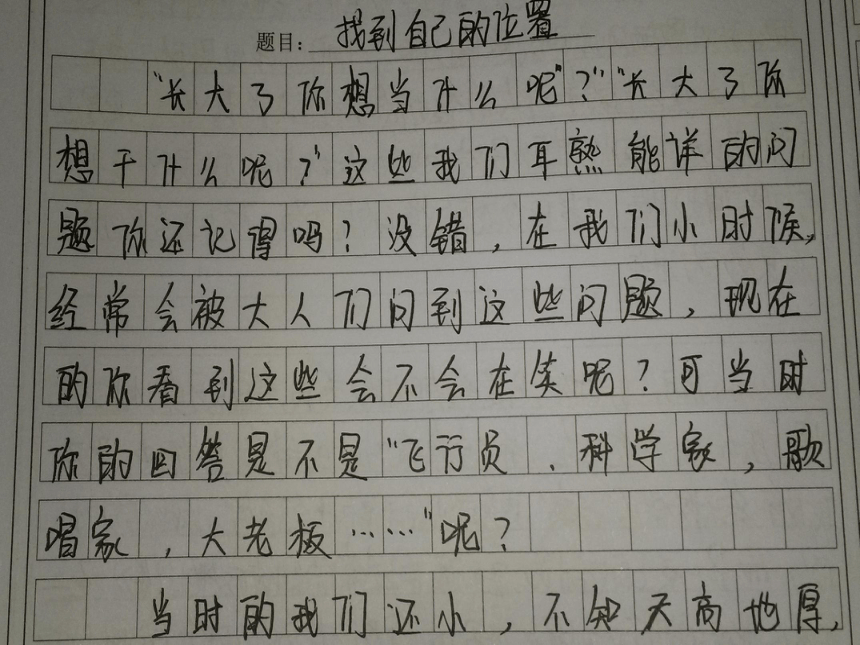 题目：找到自己的位置
“长大了你想当什么呢”？“长大了你
想干什么呢？”这些我们耳熟能详的问
题你还记得吗？没错，在我们小时候，
经常会被大人们问到这些问题，现在
的你看到这些会不会在笑呢？可当时
你的回答是不是“飞行员、科学家，歌
唱家，大老板……”呢？
当时的我们还小，不知天高地厚，